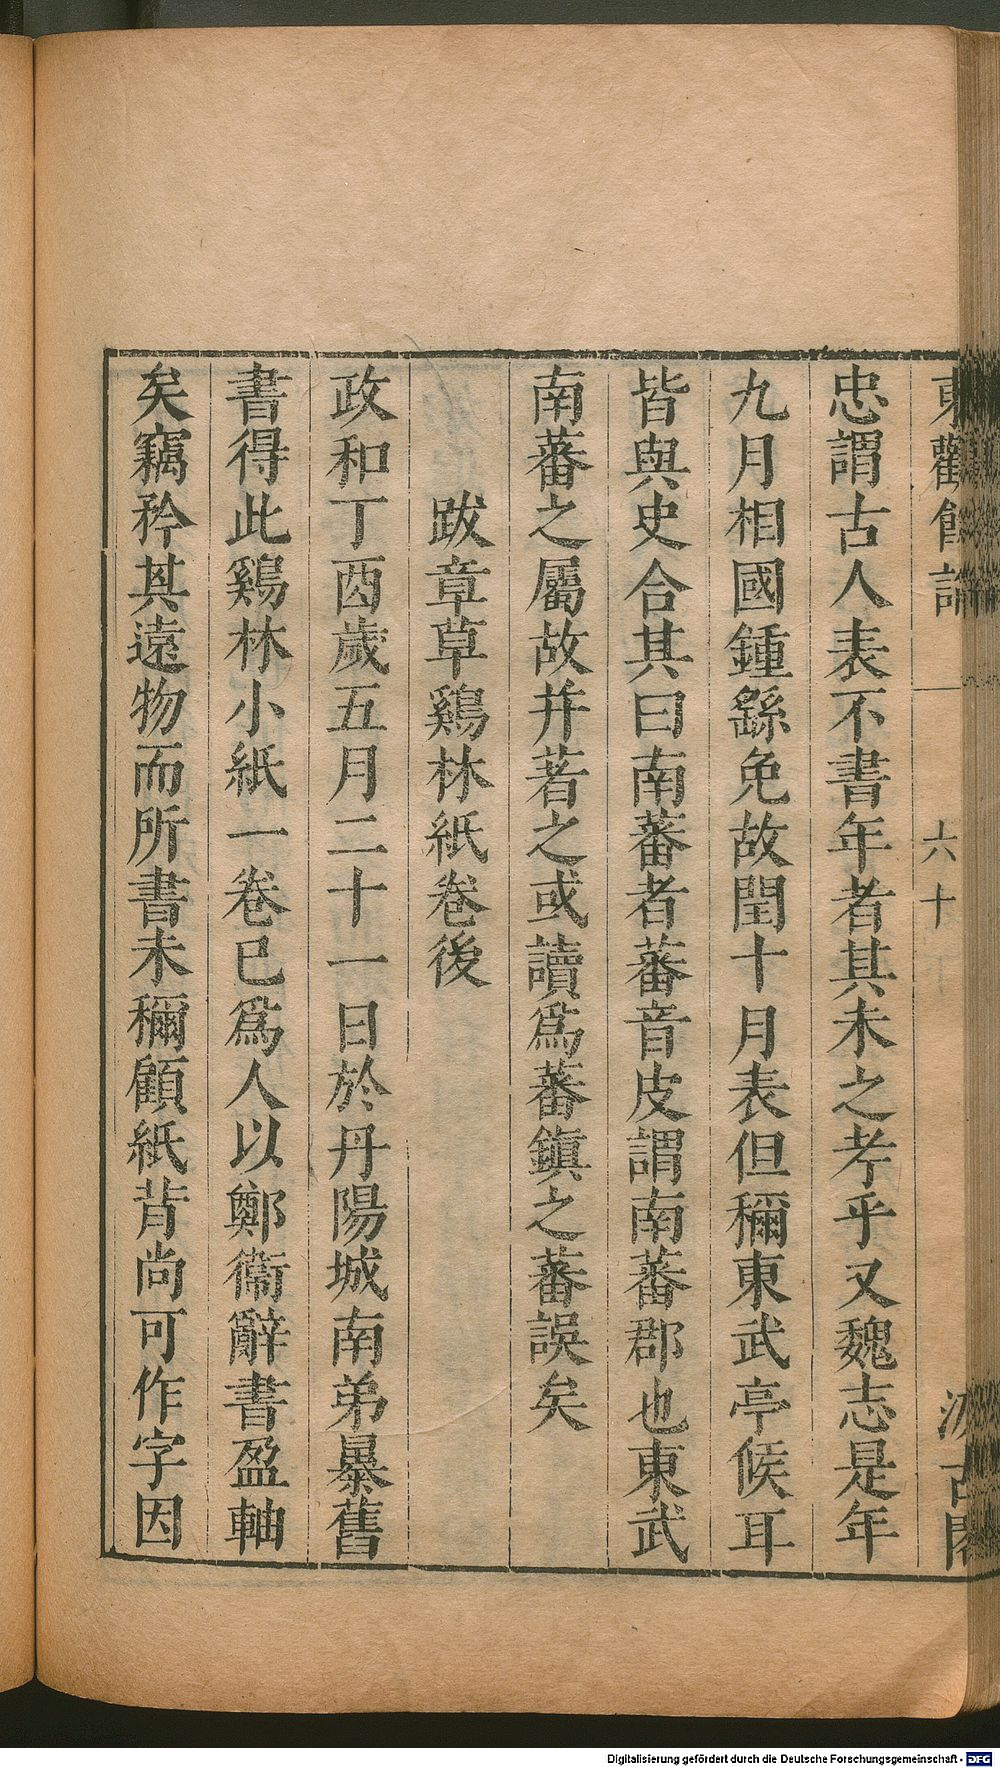 東觀餘論 六十 汲古閣
忠謂古人表不書年者其未之考乎又魏志是年
九月相國鍾繇免故閏十月表但稱東武亭候耳
皆與史合其曰南蕃者蕃音皮謂南蕃郡也東武
南蕃之屬故并著之或讀爲蕃鎭之蕃誤矣
跋章草鷄林紙卷後
政和丁酉歲五月二十一日於丹陽城南弟暴舊
書得此鷄林小紙一卷已爲人以鄭衞辭書盈軸
矣竊矜其遠物而所書未稱顧紙背尚可作字因
Digitalisierung gefördert durch die Deutsche Forschungsgemeinschaft - DFG